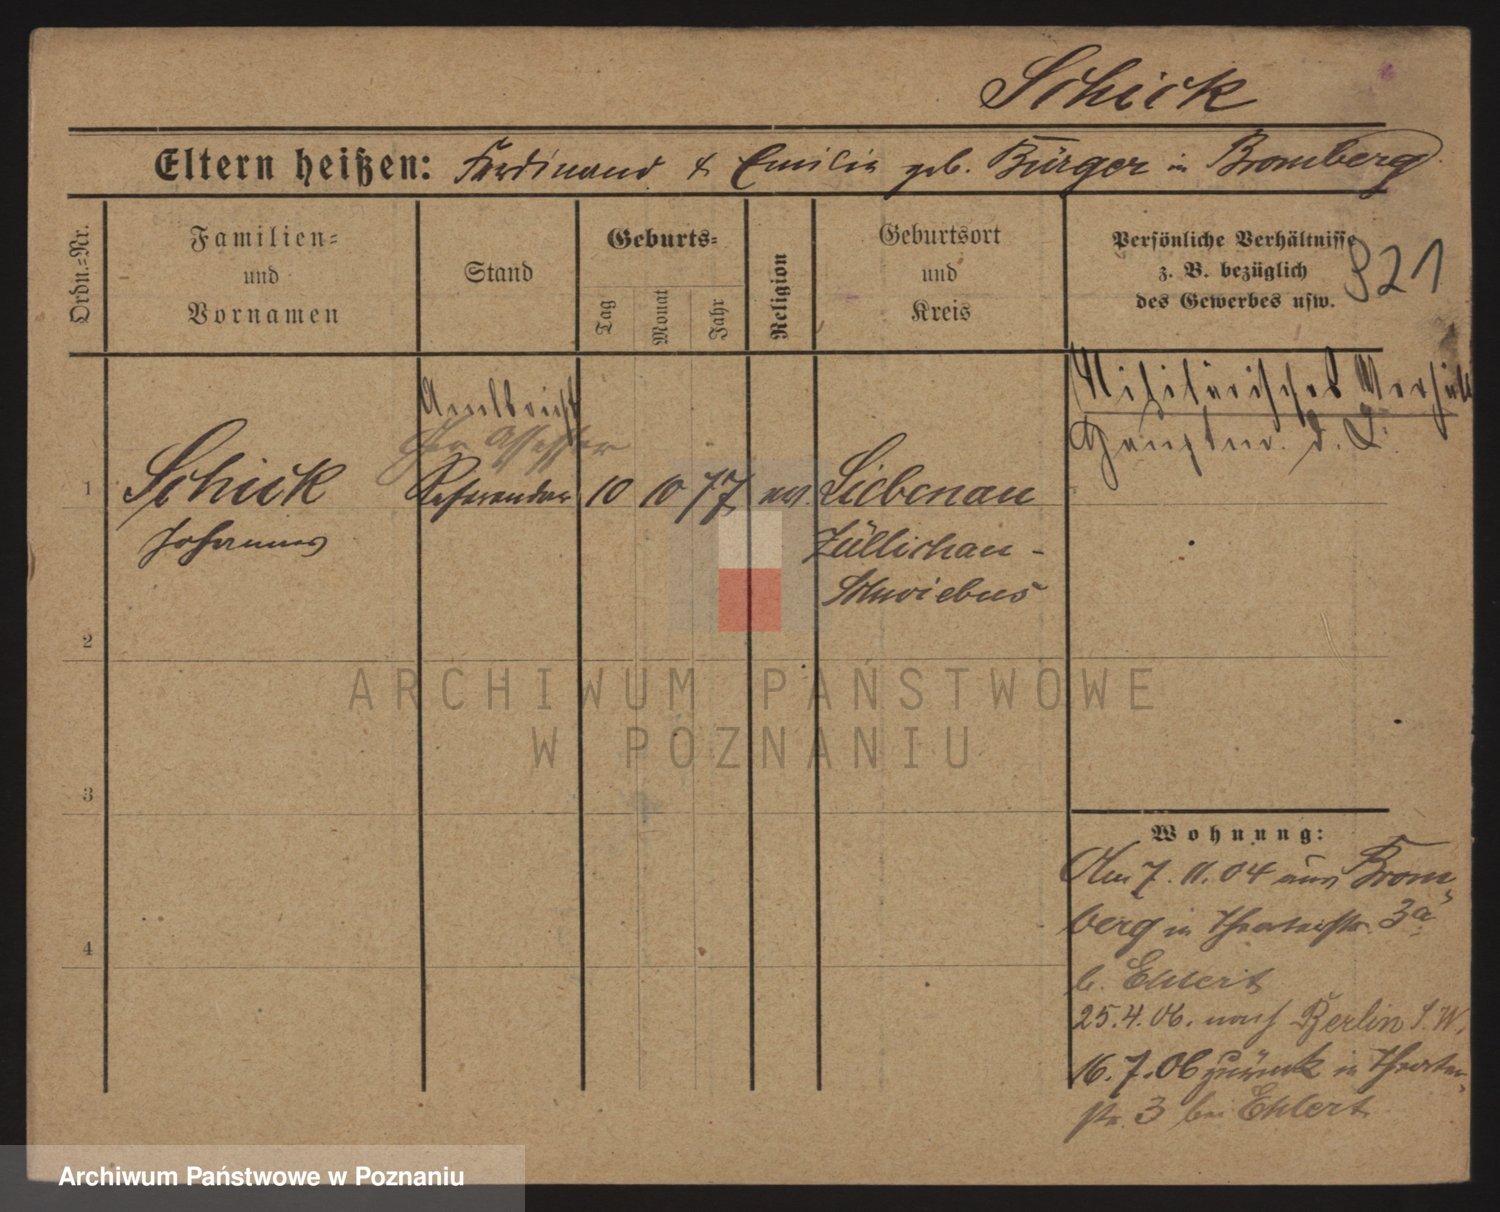 Schick
Eltern heißen: Ferdinand & Emilie geb. Bürger in Bromberg
Ordn.-Nr.
Familien-
und
Vornamen
Stand
Geburts-
Tag
Monat
Jahr
Religion
Geburtsort
und
Kreis
Persönliche Verhältnisse
z. B. bezüglich
des Gewerbes usw.
921
Militärisches Verhält
Hauptm. d. L.
Ger. Assessor
1 Schick Referendar 10 10 77 ev. Liebenau
Johannes
Züllichau-
Schwiebus
2
3
4
ARCHIWUM PAŃSTWOWE
W POZNANIU
Wohnung:
Am 7.11.04 aus Brom-
berg in Theaterstr. 3a
b. Ehlert
25.4.06. nach Berlin S.W.
16.7.06 zurück in Theater-
str. 3 bei Ehlert
Archiwum Państwowe w Poznaniu